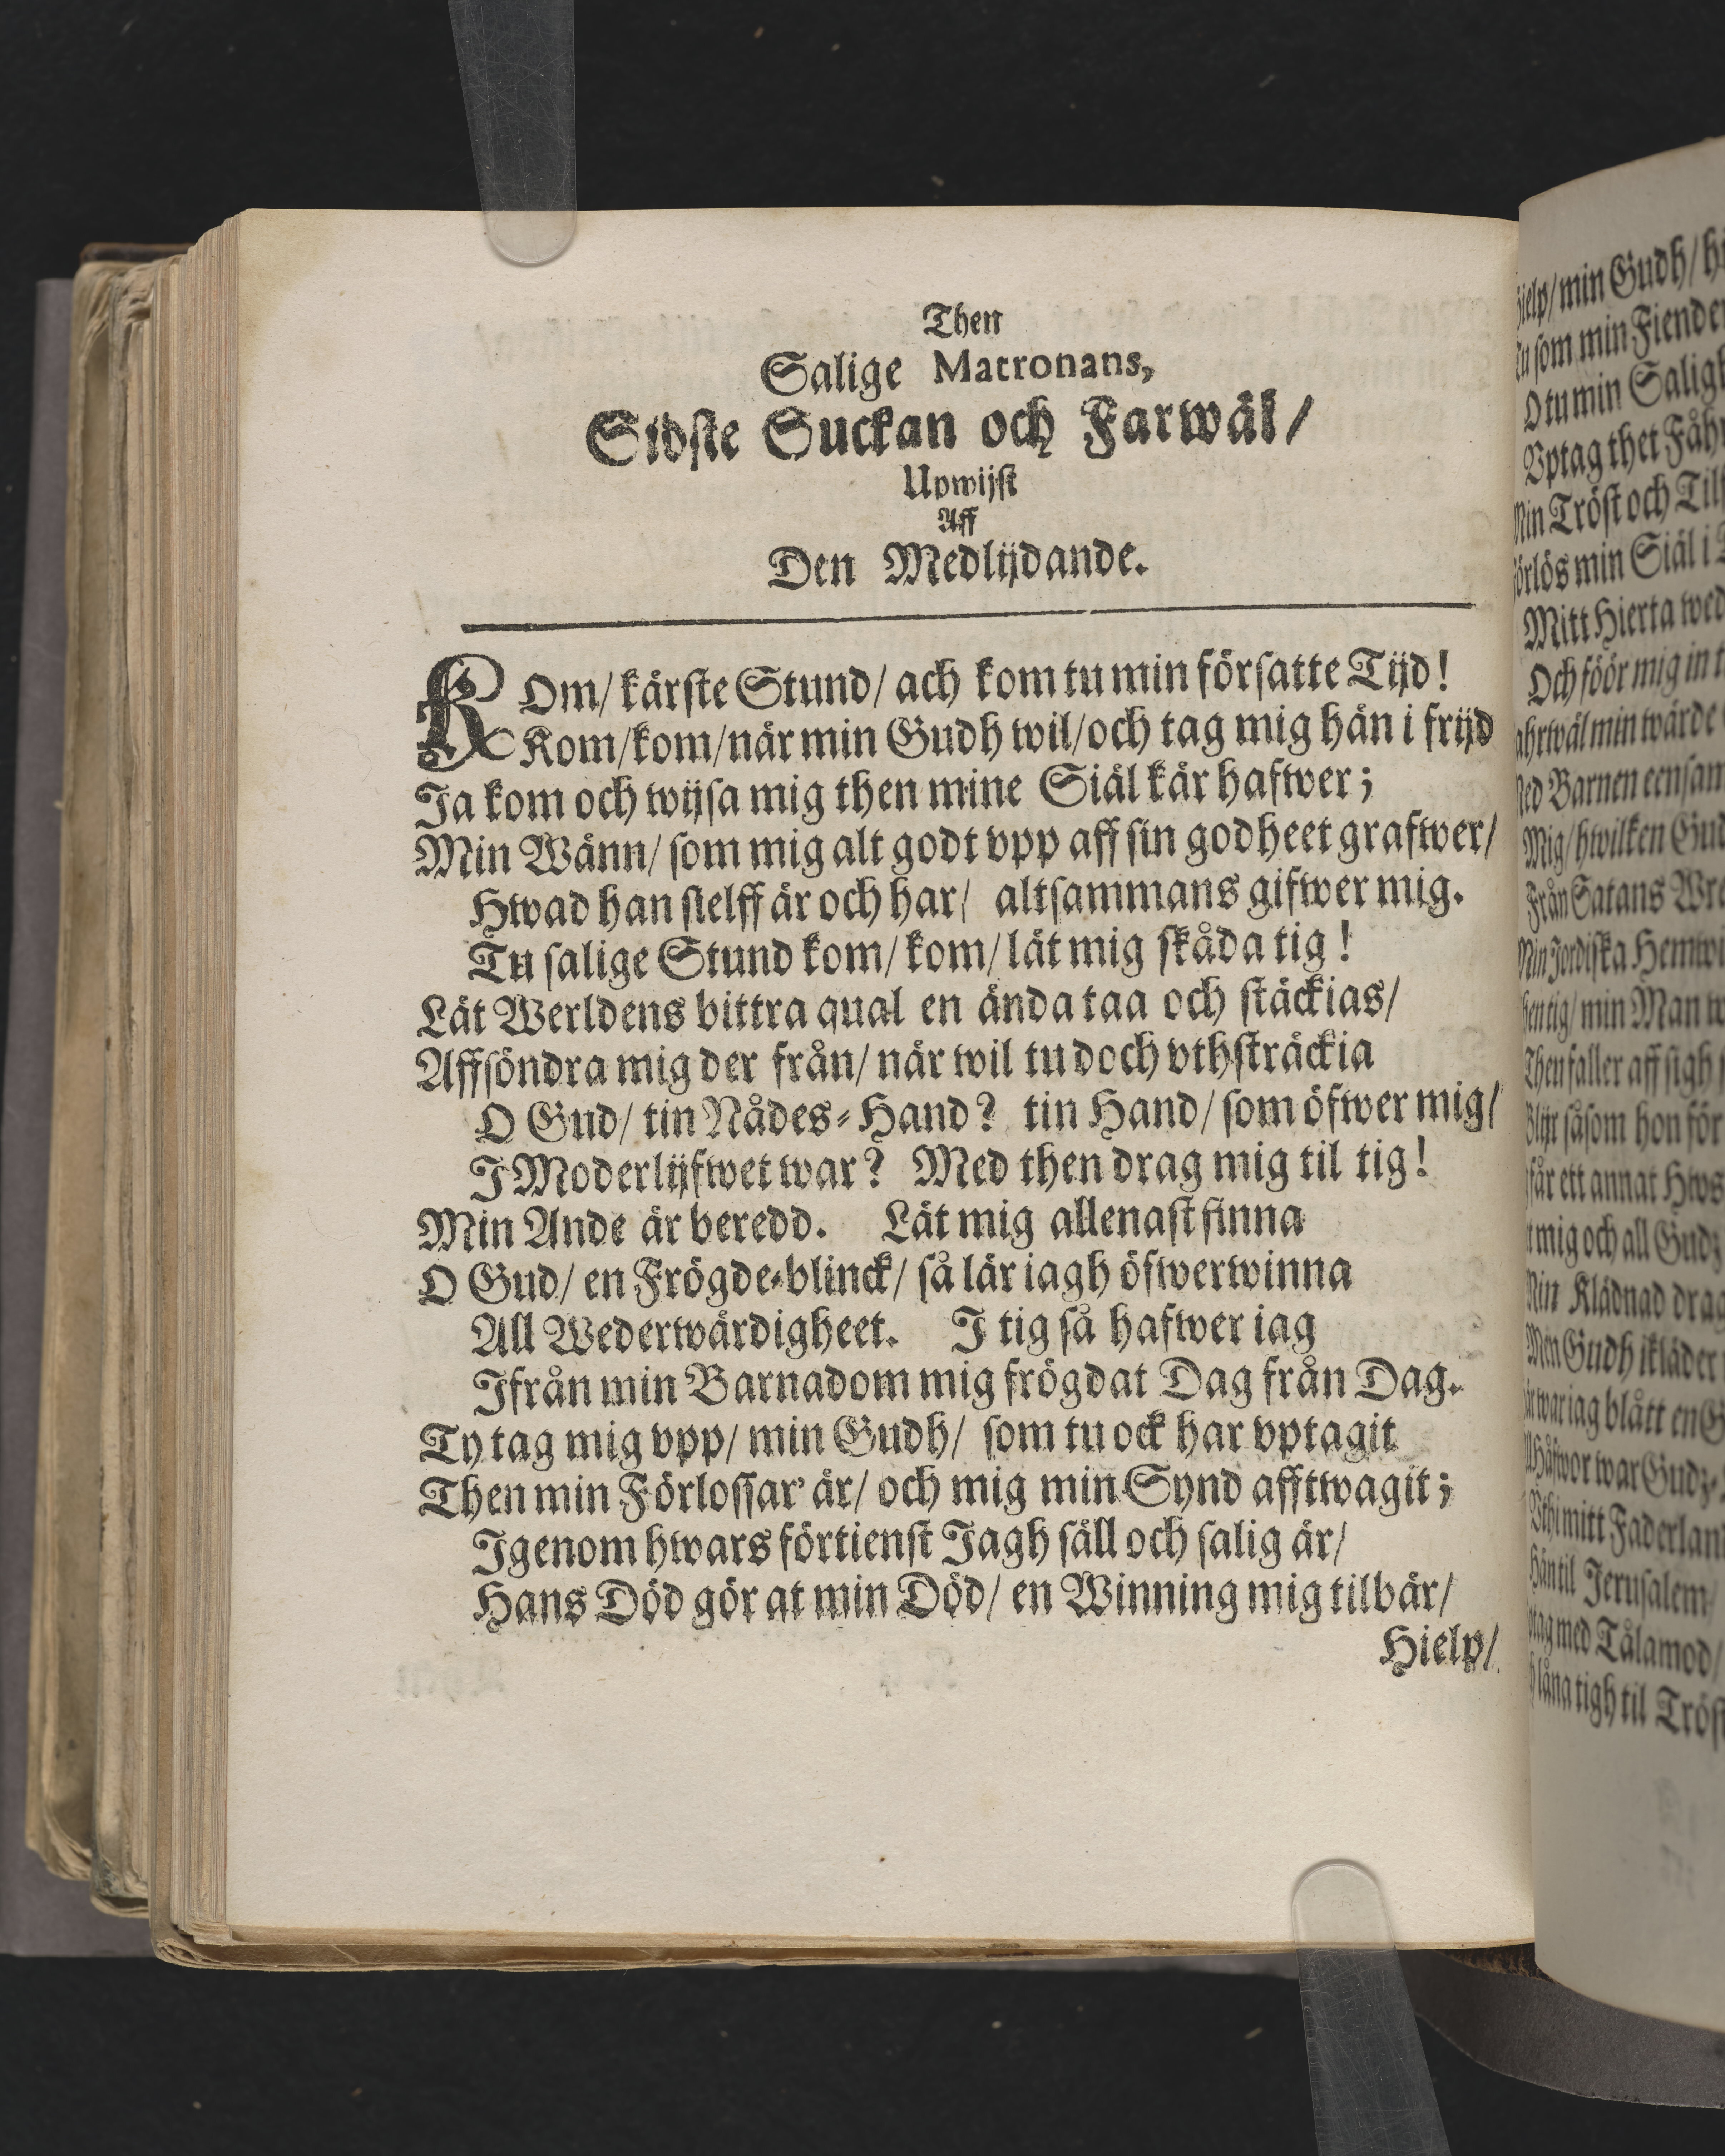 Then
Salige Matronans,
Sidste Suckan och Farwäl/
Upwijst
Aff
Den Medlijdande.
KOm/ kärste Stund/ ach kom tu min försatte Tijd!
Kom/kom/när min Gudh wil/och tag mig hän i frijd
Ja kom och wijsa mig then mine Siäl kär hafwer;
Min Wänn/ som mig alt godt vpp aff sin godheet grafwer/
Hwad han sielff är och har/ altsammans gifwer mig.
Tu salige Stund kom/ kom/ lät mig skåda tig!
Lät Werldens bittra qual en ända taa och stäckias/
Affsöndra mig der från/ när wil tu doch vthsträckia
O Gud/ tin Nådes-Hand? tin Hand/ som öfwer mig/
I Moderlijfwet war? Med then drag mig til tig!
Min Ande är beredd. Lät mig allenast finna
O Gud/ en Frögde-blinck/ så lär iagh öfwerwinna
All Wederwärdigheet. I tig så hafwer iag
Ifrån min Barnadom mig frögdat Dag från Dag.
Ty tag mig vpp/ min Gudh/ som tu ock har vptagit
Then min Förlossar' är/ och mig min Synd afftwagit;
Igenom hwars förtienst Jagh säll och salig är/
Hans Död gör at min Död/ en Winning mig tilbär/
Hielp/
min Gudh/
som min Fiende
O tu min
Vptag thet
Tröst och
min Siäl i
Mitt Hierta
Och föör mig in
min wärde
Barnen
Mig/ hwilken
Från Satans
Jordiska
min Man
faller aff sigh
såsom hon för
ett annat
mig och all
Klädnad
Gudh ikläder
war iag blått en
war
mitt
til Jerusalem/
med Tålamod/
tigh til